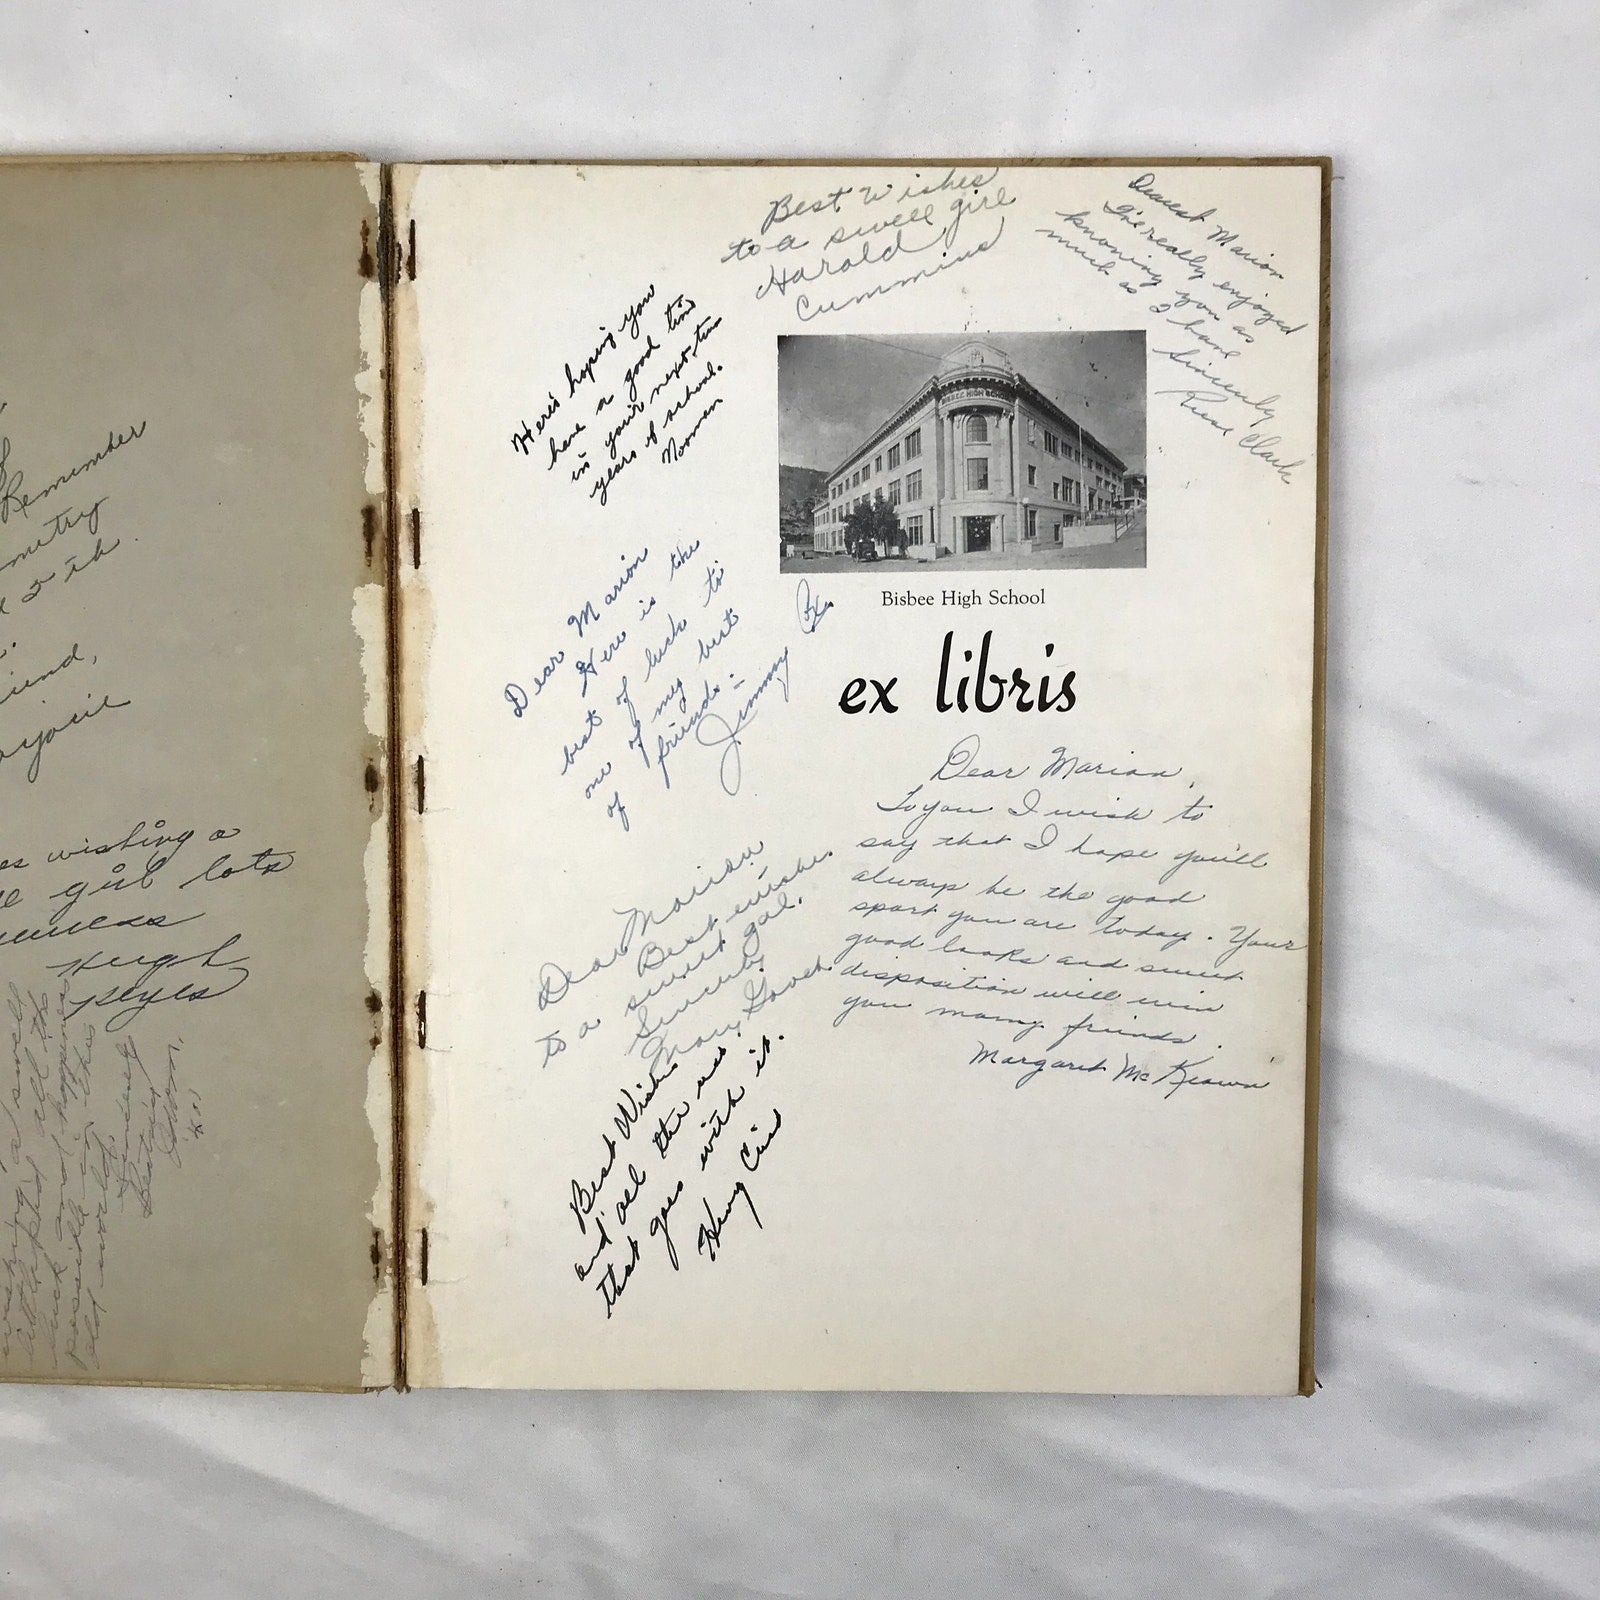 Remember
metry
2 th
iend,
arjorie
es wishing a
girl lots
Hugh
Keyes
a swell
all the
luck and happiness
possible in this
old world.
Sincerely
Best Wishes
to a swell girl
Harold
Cummins
Dearest Marion
I've really enjoyed
knowing you as
much as I have
Sincerely
Clark
Here's hoping you
have a good time
in your next two
years of school.
Norman
BISBEE HIGH SCHOOL
Bisbee High School
ex libris
Dear Marion
Here is the
best of luck to
one of my best
of friends:-
Jimmy
Dear Marian,
To you I wish to
say that I hope you'll
always be the good
sport you are today. Your
good looks and sweet
disposition will win
you many friends.
Margaret McKeown
Dear Marian
Best wishes
to a sweet gal.
Sincerely,
Mary
Best Wishes
and all the
that goes with it.
Henry